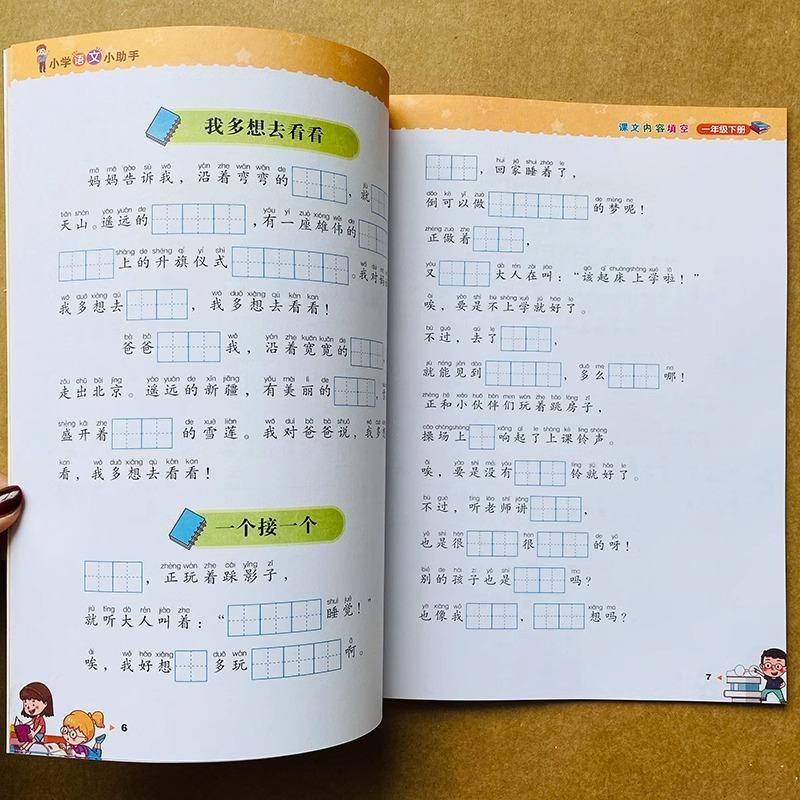 小学语文小助手
我多想去看看
mā ma gào sù wǒ yán zhe wān wān de jiù
妈妈告诉我，沿着弯弯的，就
tiān shān yáo yuǎn de yǒu yí zuò xióng wěi de
天山。遥远的，有一座雄伟的
shàng de shēng qí yí shì wǒ duì
上的升旗仪式。我对妈
wǒ duō xiǎng qù wǒ duō xiǎng qù kàn kan
我多想去，我多想去看看！
bà ba wǒ yán zhe kuān kuān de
爸爸我，沿着宽宽的
zǒu chū běi jīng yáo yuǎn de xīn jiāng yǒu měi lì de
走出北京。遥远的新疆，有美丽的，
shèng kāi zhe de xuě lián wǒ duì bà ba shuō wǒ duō
盛开着的雪莲。我对爸爸说，我多
kan wǒ duō xiǎng qù kàn kan
看，我多想去看看！
一个接一个
zhèng wán zhe cǎi yǐng zi
，正玩着踩影子，
jiù tīng dà rén jiào zhe shuì jiào
就听大人叫着：“睡觉！”
ài wǒ hǎo xiǎng duō wán a
唉，我好想多玩啊。
6
课文内容填空 一年级下册
huí jiā shuì zháo le
，回家睡着了，
dào kě yǐ zuò de mèng ne
倒可以做的梦呢！
正做着，
yòu dà rén zài jiào gāi qǐ chuáng shàng xué la
又大人在叫：“该起床上学啦！”
ài yào shi bú shàng xué jiù hǎo le
唉，要是不上学就好了。
bú guò qù le
不过，去了，
jiù néng jiàn dào duō me
就能见到，多么哪！
zhèng hé xiǎo huǒ bàn men wán zhe tiào fáng zi
正和小伙伴们玩着跳房子，
cāo chǎng shàng xiǎng qǐ le shàng kè líng shēng
操场上响起了上课铃声。
ài yào shi méi yǒu líng jiù hǎo le
唉，要是没有铃就好了。
bú guò tīng lǎo shī jiǎng
不过，听老师讲，
yě shì hěn hěn de ya
也是很很的呀！
bié de hái zi yě shì ma
别的孩子也是吗？
yě xiàng wǒ xiǎng ma
也像我，想吗？
7